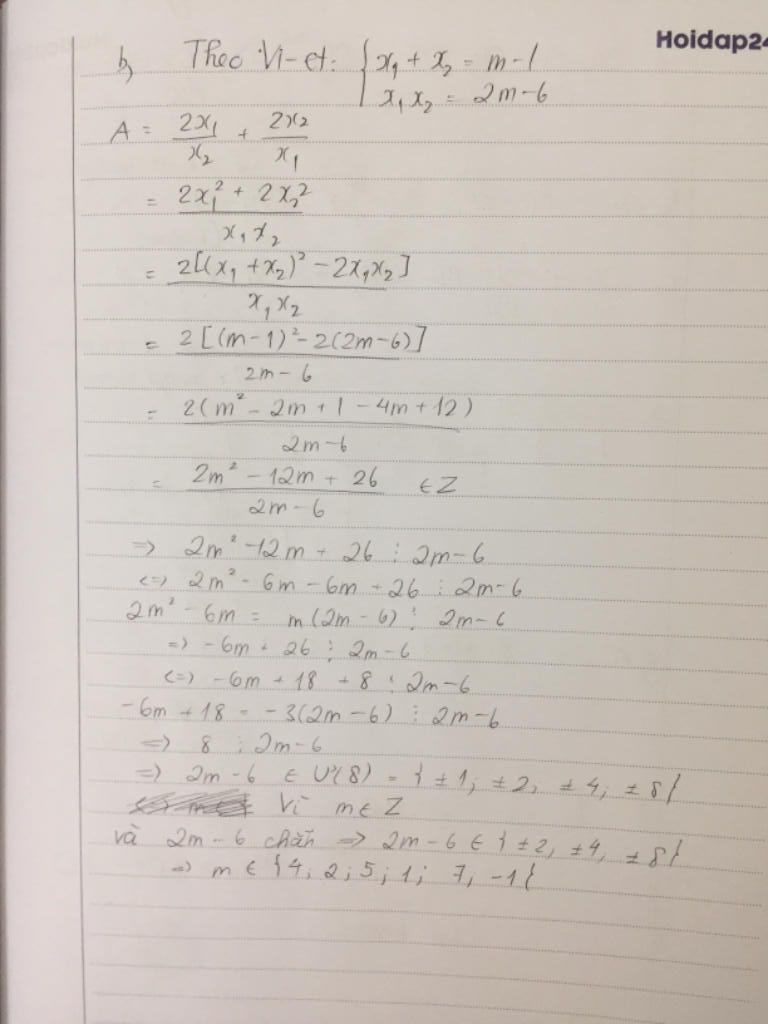 Hoidap24
b, Theo Vi-et: { x₁ + x₂ = m-1
x₁x₂ = 2m-6
A = 2x₁/x₂ + 2x₂/x₁
= (2x₁² + 2x₂²)/(x₁x₂)
= 2[(x₁ + x₂)² - 2x₁x₂]/(x₁x₂)
= 2[(m-1)² - 2(2m-6)]/(2m-6)
= 2(m² - 2m + 1 - 4m + 12)/(2m-6)
= (2m² - 12m + 26)/(2m-6) ∈ Z
=> 2m² - 12m + 26 ⋮ 2m-6
<=> 2m² - 6m - 6m + 26 ⋮ 2m-6
2m² - 6m = m(2m-6) ⋮ 2m-6
=> -6m + 26 ⋮ 2m-6
<=> -6m + 18 + 8 ⋮ 2m-6
-6m + 18 = -3(2m-6) ⋮ 2m-6
=> 8 ⋮ 2m-6
=> 2m-6 ∈ Ư(8) = { ±1; ±2, ±4; ±8}
Vì m ∈ Z
và 2m-6 chẵn => 2m-6 ∈ { ±2, ±4, ±8}
=> m ∈ {4; 2; 5; 1; 7, -1}